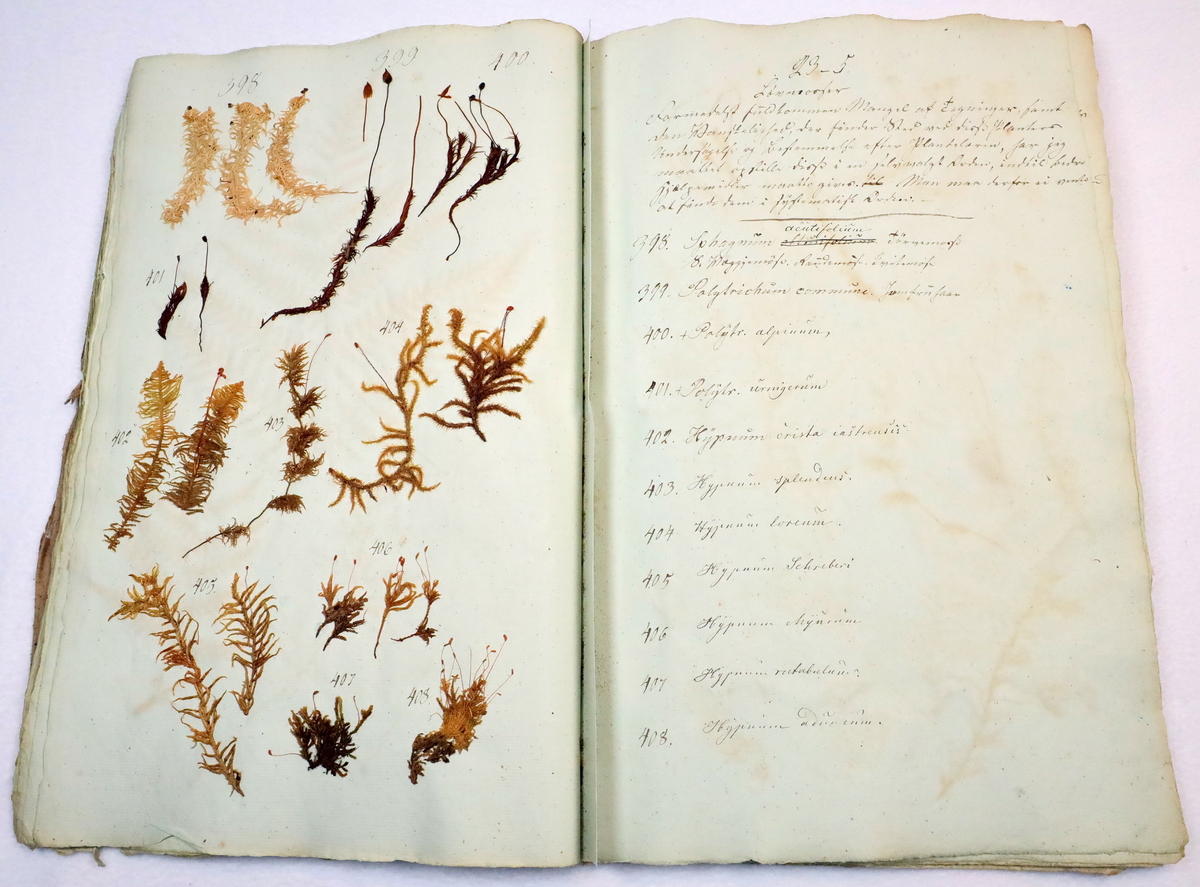 398
399
400.
401
402
403
404
405.
406
407
408.
23-5
Løvmosser
Formedelst fuldkommen Mangel af Tegninger, samt
den Vanskelighed, der finder Sted ved disse Planters
Undersøgelse og Bestemmelse efter Plantelæren, har jeg
maattet opstille disse i en selvvalgt Orden, indtil bedre
Hjælpemidler maatte gives. Man maa derfor ei vente
at finde dem i systematisk Orden.
398. Sphagnum acutifolium Tørvemose
399. Polytrichum commune. Jomfruhaar
400. + Polytr. alpinum,
401. + Polytr. urnigerum
402. Hypnum crista castrensis
403. Hypnum splendens.
404 Hypnum loreum.
405 Hypnum Schreberi
406 Hypnum Myurum
407 Hypnum rutabulum.
408. Hypnum aduncum.